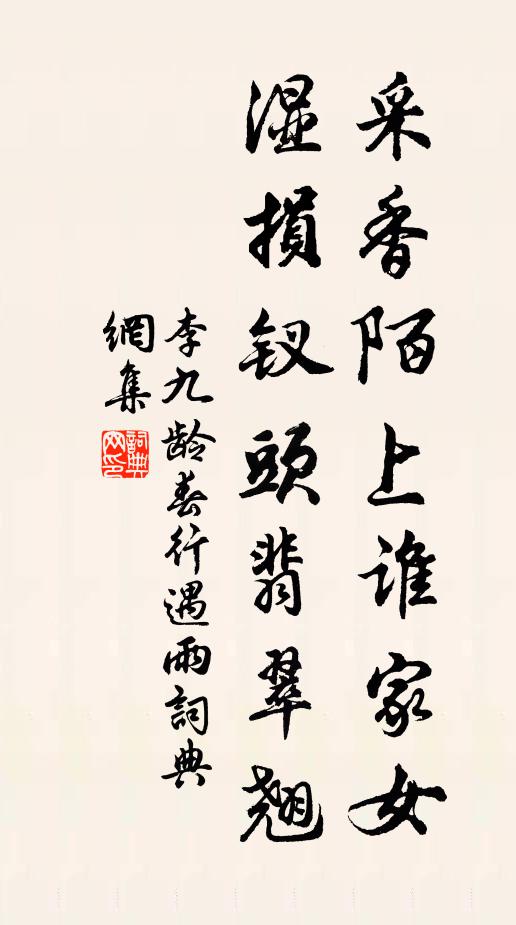 采香陌上谁家女
湿損钗頭翡翠翘
李九龄春行遇雨詞典
網集
詞典
网印